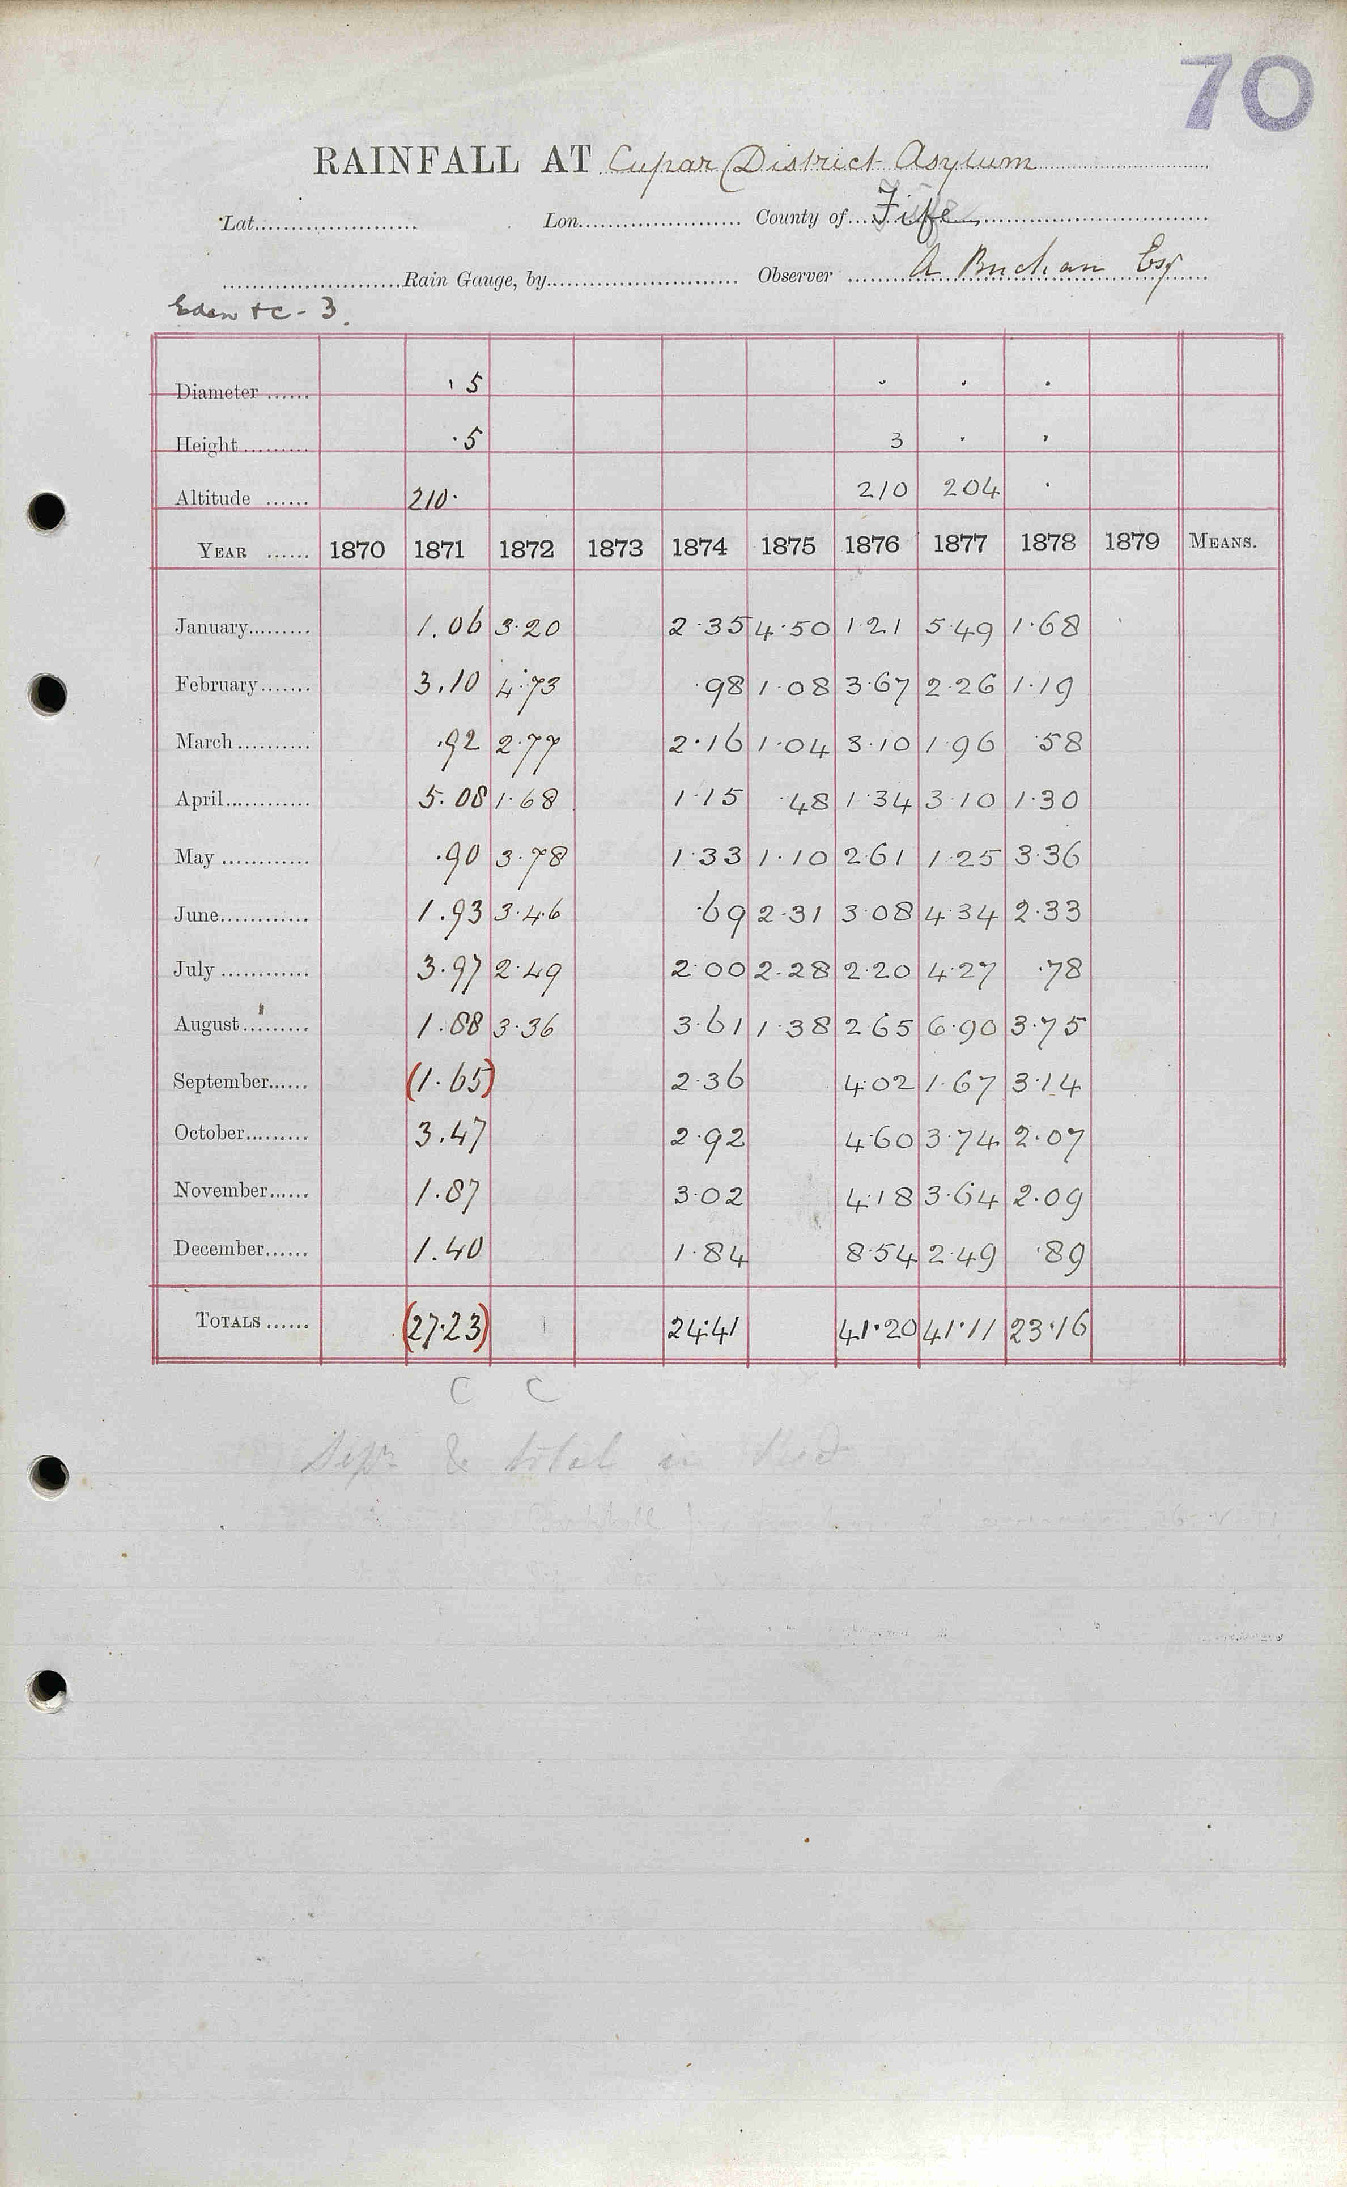 70
RAINFALL AT Cupar District Asylum
Lat. Lon. County of Fife
Rain Gauge, by Observer A Buchan Esq
Eden &c - 3.
Diameter ·5 · · ·
Height ·5 3 · ·
Altitude 210· 210 204 ·
YEAR 1870 1871 1872 1873 1874 1875 1876 1877 1878 1879 MEANS.
January 1.06 3·20 2·35 4·50 1·21 5·49 1·68
February 3.10 4·73 ·98 1·08 3·67 2·26 1·19
March ·92 2·77 2·16 1·04 3·10 1·96 ·58
April 5.08 1·68 1·15 ·48 1·34 3·10 1·30
May ·90 3·78 1·33 1·10 2·61 1·25 3·36
June 1.93 3·46 ·69 2·31 3·08 4·34 2·33
July 3·97 2·49 2·00 2·28 2·20 4·27 ·78
August 1.88 3·36 3·61 1·38 2·65 6·90 3·75
September (1·65) 2·36 4·02 1·67 3·14
October 3.47 2·92 4·60 3·74 2·07
November 1.87 3·02 4·18 3·64 2·09
December 1.40 1·84 8·54 2·49 ·89
TOTALS (27·23) 24·41 41·20 41·11 23·16
C C
Sepr & total in Red